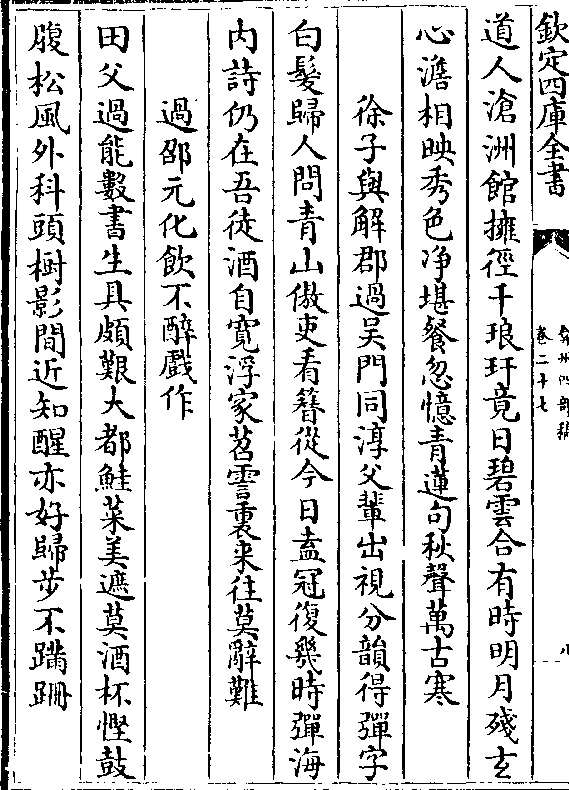 欽定四庫全書
弇州四部稿
卷二十七
八
道人滄洲館擁徑千琅玕竟日碧雲合有時明月殘玄
心澹相映秀色净堪餐忽憶青蓮句秋聲萬古寒
徐子與解郡過吳門同淳父輩出視分韻得彈字
白髮歸人問青山傲吏看簪從今日盍冠復幾時彈海
内詩仍在吾徒酒自寛浮家苕霅裏来往莫辭難
過邵元化飲不醉戲作
田父過能數書生具頗艱大都鮭菜美遮莫酒杯慳鼓
腹松風外科頭樹影間近知醒亦好歸步不蹣跚